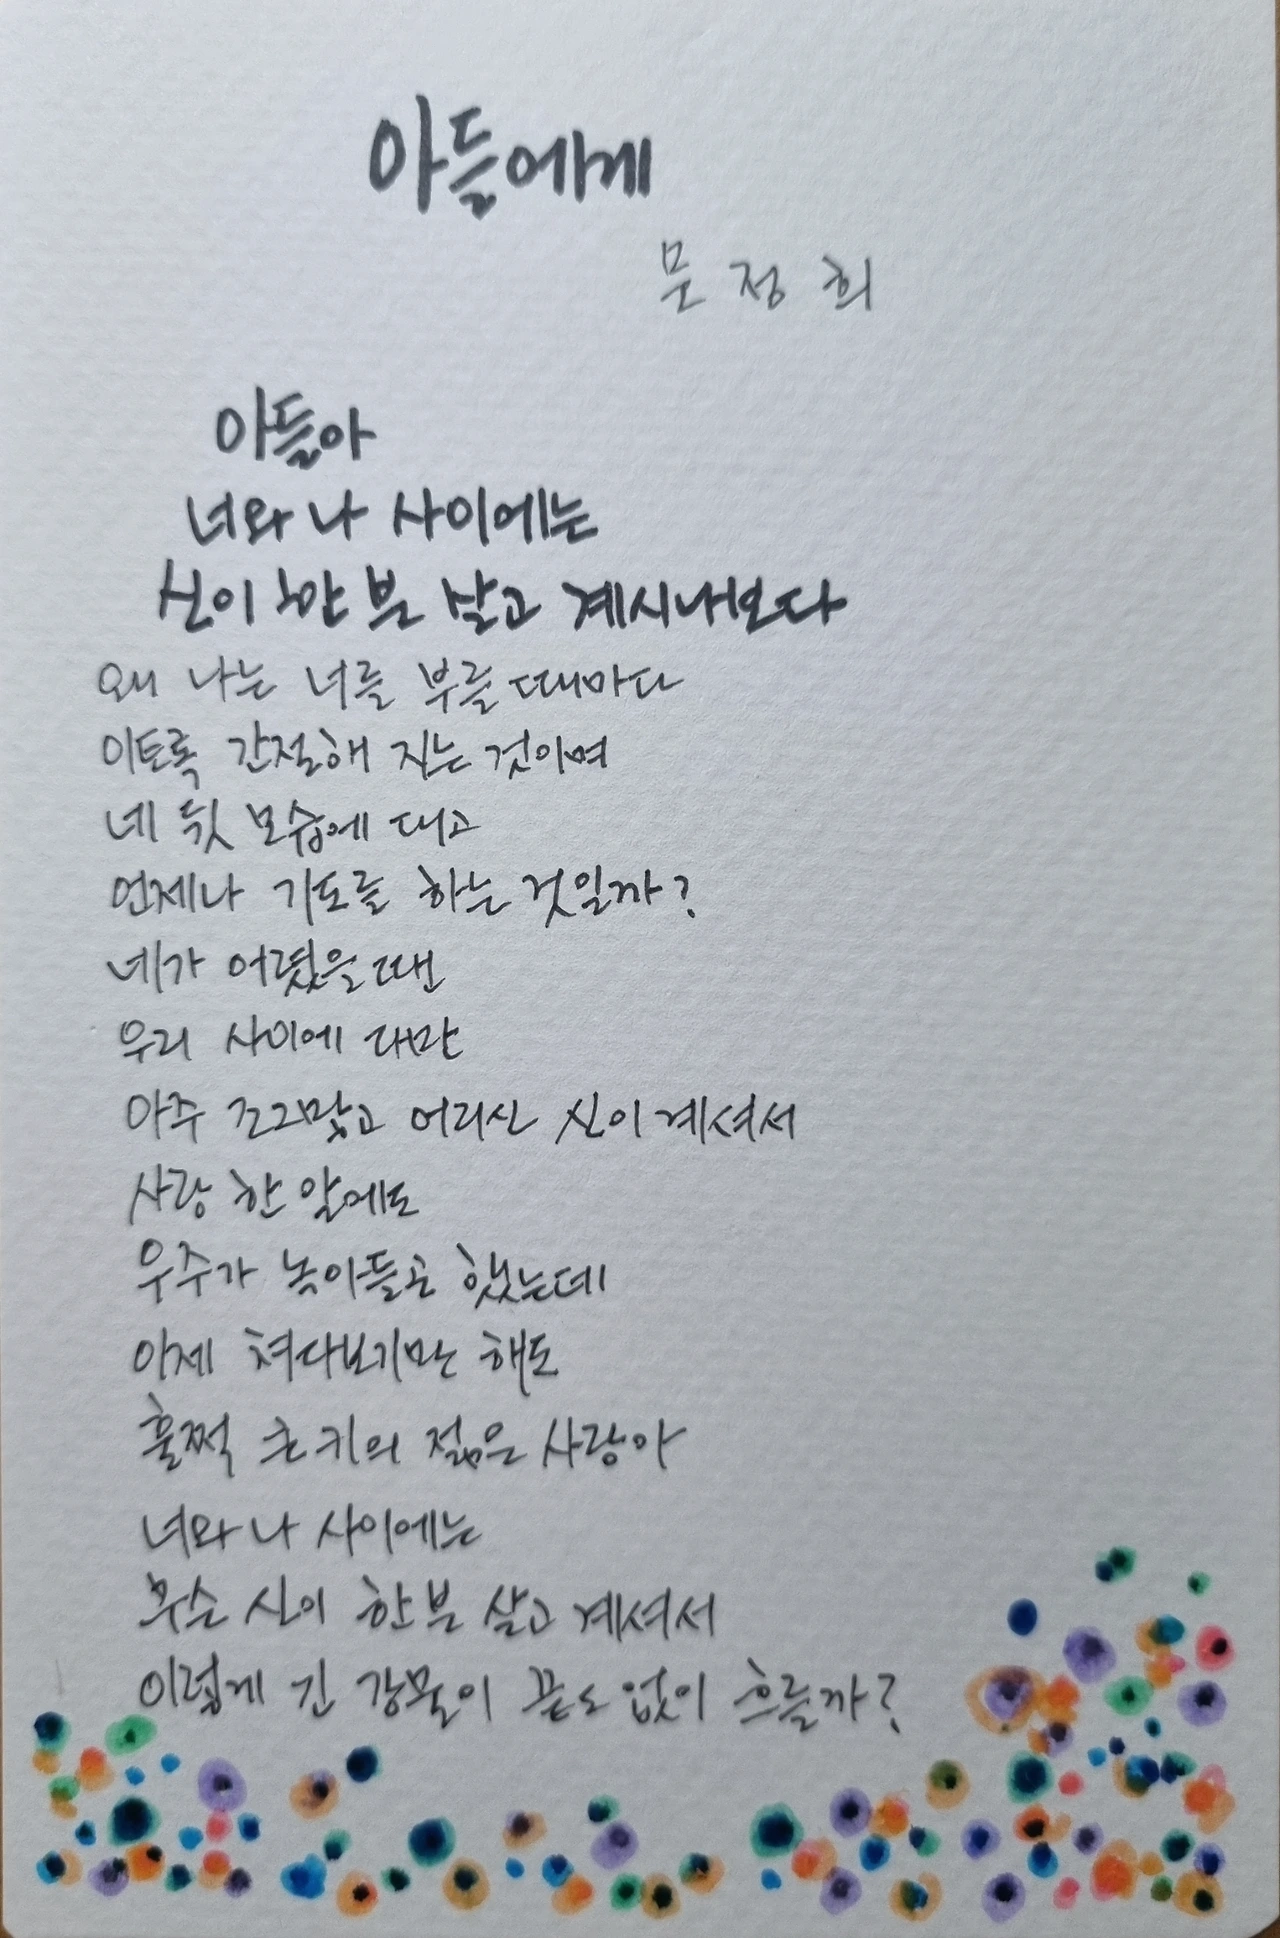 아들에게
문정희
아들아
너와 나 사이에는
신이 한 분 살고 계시나보다
왜 나는 너를 부를 때마다
이토록 간절해 지는 것이며
네 뒷 모습에 대고
언제나 기도를 하는 것일까?
네가 어렸을 땐
우리 사이에 다만
아주 조그맣고 어리신 신이 계셔서
사랑 한 알에도
우주가 녹아들곤 했는데
이제 쳐다보기만 해도
훌쩍 큰 키의 젊은 사랑아
너와 나 사이에는
무슨 신이 한 분 살고 계셔서
이렇게 긴 강물이 끝도 없이 흐를까?